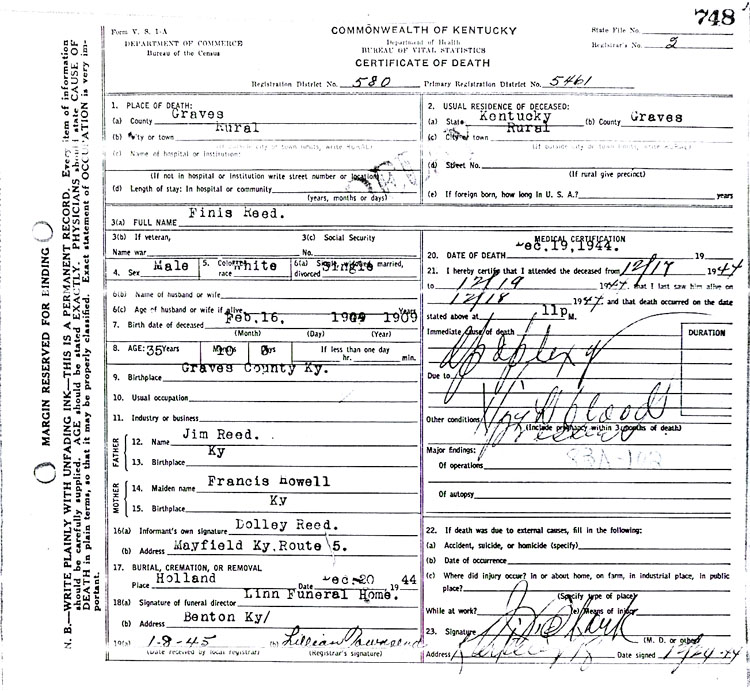 748
Form V. S. 1-A
DEPARTMENT OF COMMERCE
Bureau of the Census
COMMONWEALTH OF KENTUCKY
Department of Health
BUREAU OF VITAL STATISTICS
CERTIFICATE OF DEATH
State File No.
Registrar's No. 2
Registration District No. 580 Primary Registration District No. 5461
MARGIN RESERVED FOR BINDING
N. B.—WRITE PLAINLY WITH UNFADING INK—THIS IS A PERMANENT RECORD. Every item of information
should be carefully supplied. AGE should be stated EXACTLY. PHYSICIANS should state CAUSE OF
DEATH in plain terms, so that it may be properly classified. Exact statement of OCCUPATION is very im-
portant.
1. PLACE OF DEATH:
(a) County Graves
(b) City or town Rural
(c) Name of hospital or institution:
(If not in hospital or institution write street number or location)
(d) Length of stay: In hospital or community
(years, months or days)
2. USUAL RESIDENCE OF DECEASED:
(a) State Kentucky (b) County Graves
(c) City or town Rural
(If outside city or town limits, write RURAL)
(d) Street No.
(If rural give precinct)
(e) If foreign born, how long in U. S. A.? years
3(a) FULL NAME Finis Reed.
3(b) If veteran,
Name war
3(c) Social Security
No.
4. Sex Male 5. Color or race White 6(a) Single, widowed, married, divorced Single
6(b) Name of husband or wife
6(c) Age of husband or wife if alive Years
7. Birth date of deceased Feb,16, 1909 1909
(Month) (Day) (Year)
8. AGE: 35 Years Months 10 Days If less than one day
hr. min.
9. Birthplace Graves County Ky.
10. Usual occupation
11. Industry or business
FATHER
12. Name Jim Reed.
13. Birthplace Ky
MOTHER
14. Maiden name Francis Howell
15. Birthplace Ky
16(a) Informant's own signature Dolley Reed.
(b) Address Mayfield Ky,Route 5.
17. BURIAL, CREMATION, OR REMOVAL
Place Holland Date Dec,20 1944
18(a) Signature of funeral director Linn Funeral Home.
(b) Address Benton Ky/
19(a) 1-8-45 (b) Lillian Townsend
(Date received by local registrar) (Registrar's signature)
MEDICAL CERTIFICATION
20. DATE OF DEATH Dec,19,1944. 19
21. I hereby certify that I attended the deceased from 12/17 1944
to 12/19 1944 that I last saw him alive on
12/18 1944 and that death occurred on the date
stated above at 11p M.
Immediate cause of death
DURATION
Apoplexy
Due to
High blood
pressure
Other conditions
(Include pregnancy within 3 months of death)
83A-102
Major findings:
Of operations
Of autopsy
22. If death was due to external causes, fill in the following:
(a) Accident, suicide, or homicide (specify)
(b) Date of occurrence
(c) Where did injury occur? In or about home, on farm, in industrial place, in public
place?
(Specify type of place)
While at work? (e) Means of injury
23. Signature (M. D. or other)
Address Date signed 12/24-44